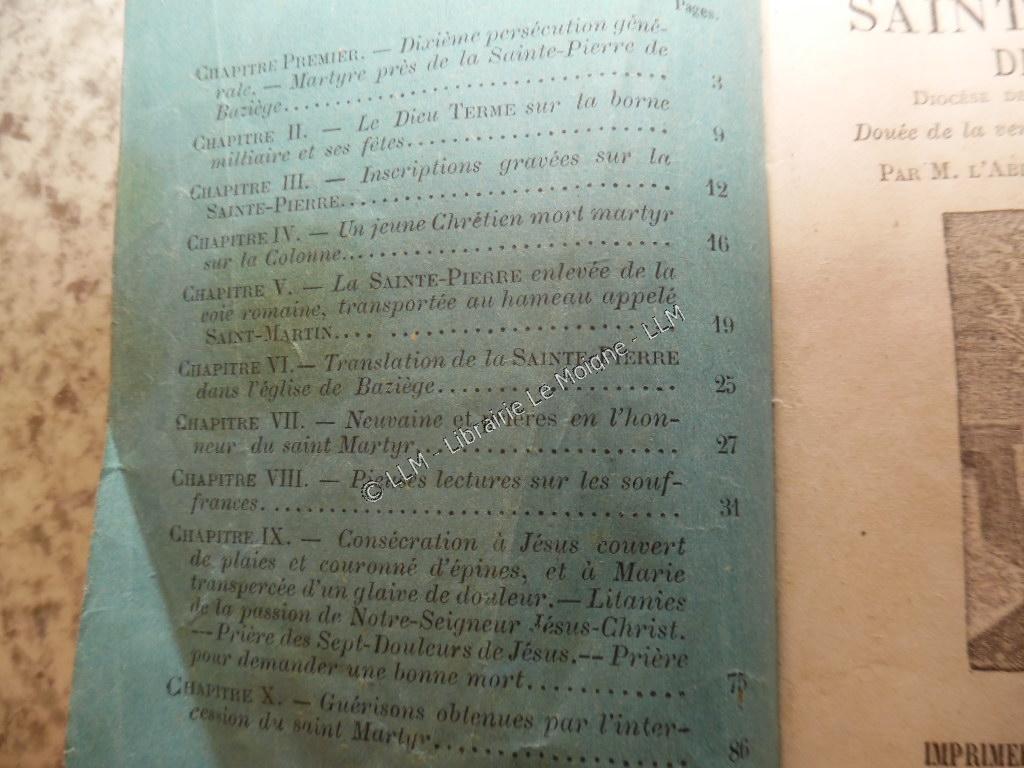 Pages.
CHAPITRE PREMIER. — Dixième persécution géné-
rale. — Martyre près de la Sainte-Pierre de
Baziège........................ 3
CHAPITRE II. — Le Dieu TERME sur la borne
milliaire et ses fêtes........................ 9
CHAPITRE III. — Inscriptions gravées sur la
SAINTE-PIERRE........................ 12
CHAPITRE IV. — Un jeune Chrétien mort martyr
sur la Colonne........................ 16
CHAPITRE V. — La SAINTE-PIERRE enlevée de la
voie romaine, transportée au hameau appelé
SAINT-MARTIN........................ 19
CHAPITRE VI. — Translation de la SAINTE-PIERRE
dans l'église de Baziège........................ 25
CHAPITRE VII. — Neuvaine et prières en l'hon-
neur du saint Martyr........................ 27
CHAPITRE VIII. — Pieuses lectures sur les souf-
frances........................ 31
CHAPITRE IX. — Consécration à Jésus couvert
de plaies et couronné d'épines, et à Marie
transpercée d'un glaive de douleur. — Litanies
de la passion de Notre-Seigneur Jésus-Christ.
— Prière des Sept-Douleurs de Jésus. -- Prière
pour demander une bonne mort........................ 75
CHAPITRE X. — Guérisons obtenues par l'inter-
cession du saint Martyr........................ 86
© LLM - Librairie Le Moigne - LLM
SAINT
DIOCÈSE DE
Douée de la
PAR M. L'AB
IMPRIME